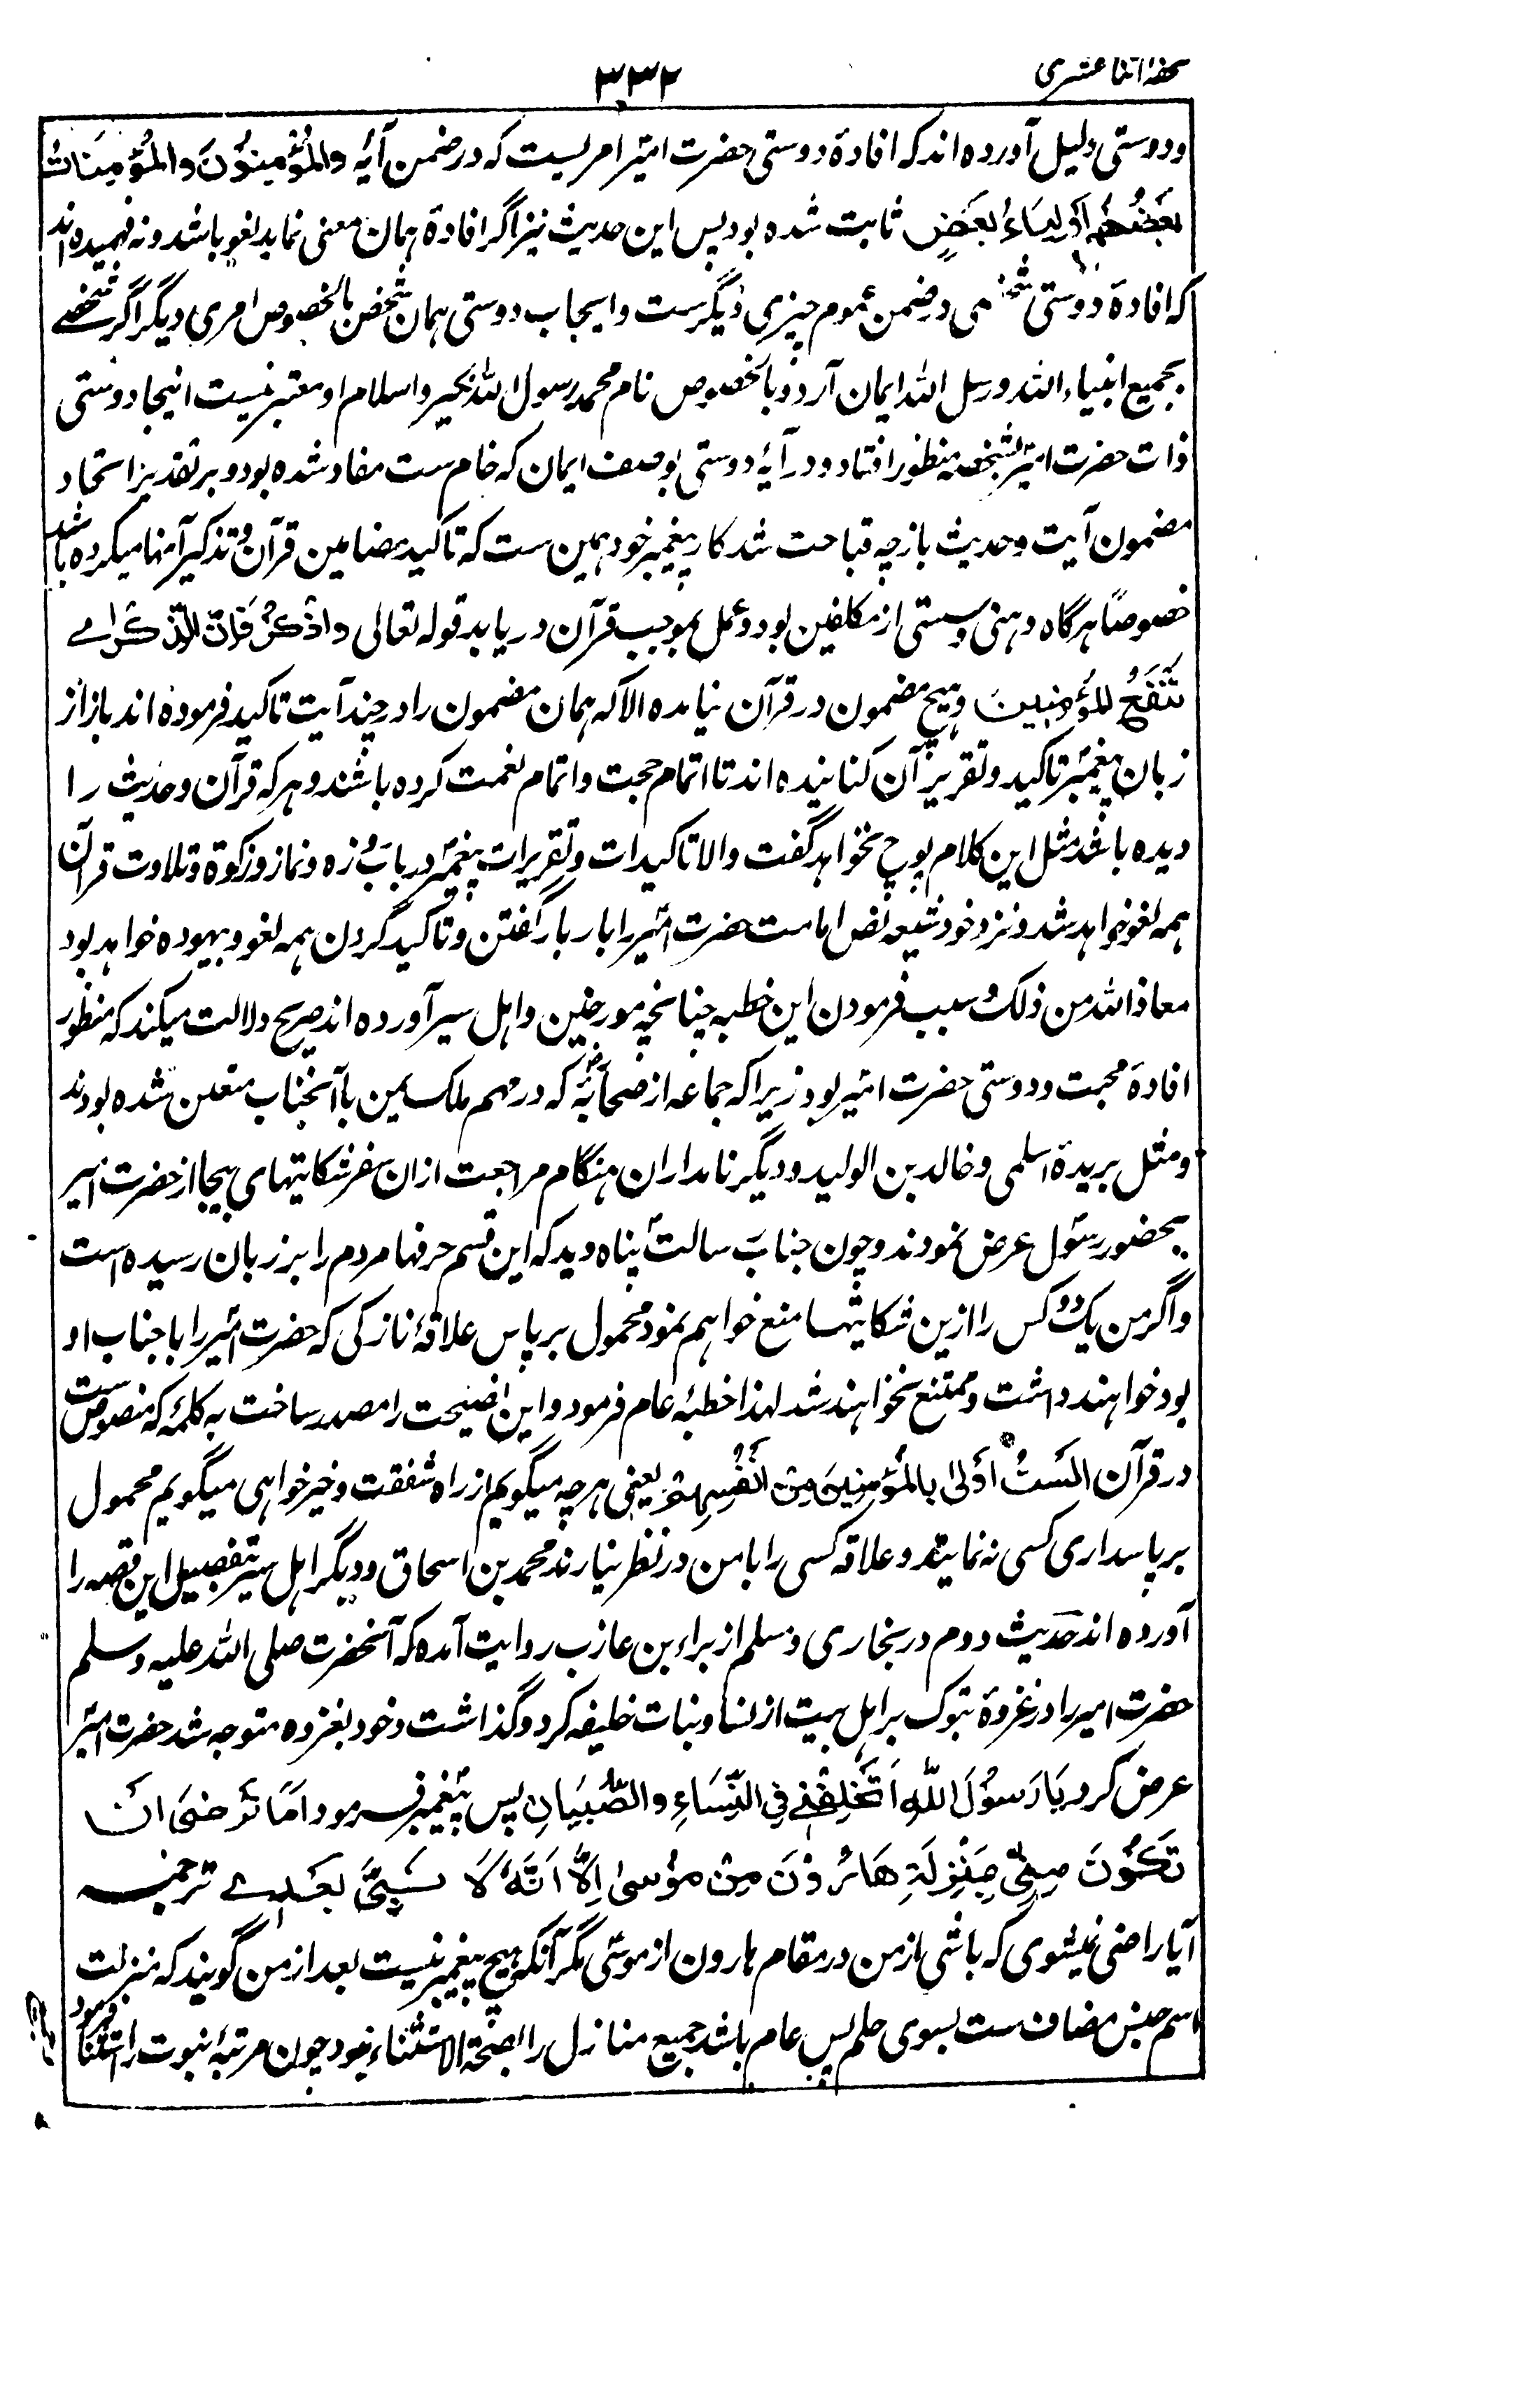 تحفه اثنا عشری
۳۳۲
ودوستی دلیل آورده اند که افادۀ دوستی حضرت امیر امریست که در ضمن آیه والمُؤمِنُونَ والمُؤمِنَاتُ
بَعضُهُم اَولِیَاءُ بَعضٍ ثابت شده بود پس این حدیث نیز اگر افادۀ همان معنی نماید لغو باشد ونه فهمیده اند
که افادۀ دوستی شخصی در ضمن عموم چیزی دیگرست وایجاب دوستی همان شخص بالخصوص امری دیگر اگر شخصے
بجمیع انبیاء الله ورسل الله ایمان آرد وبالخصوص نام محمد رسول الله نگیرد اسلام او معتبر نیست اینجا دوستی
ذات حضرت امیر بشخصه منظور افتاد ودر آیۀ دوستی بوصف ایمان که عام ست مفاد شده بود وبر تقدیر اتحاد
مضمون آیت وحدیث باز چه قباحت شد کار پیغمبر خود همین ست که تاکید مضامین قرآن وتذکیر آنها میکرده باشد
خصوصًا هرگاه وهنی وسستی از مکلفین بود وعمل بموجب قرآن دریابد قوله تعالی وَاذکُر فَاِنَّ الذِّکرٰے
تَنفَعُ المُؤمِنِینَ وهیچ مضمون در قرآن نیامده الا که همان مضمون را در چند آیت تاکید فرموده اند باز از
زبان پیغمبر تاکید وتقریر آن کنانیده اند تا اتمام حجت واتمام نعمت کرده باشند وهر که قرآن وحدیث را
دیده باشد مثل این کلام پوچ نخواهد گفت والا تاکیدات وتقریرات پیغمبر در باب روزه ونماز وزکوة وتلاوت قرآن
همه لغو خواهد شد ونزد خود شیعه نص امامت حضرت امیر را بار بار گفتن وتاکید کردن همه لغو وبیهوده خواهد بود
معاذ الله من ذلک وسبب فرمودن این خطبه چنانچه مورخین واهل سیر آورده اند صریح دلالت میکند که منظور
افادۀ محبت ودوستی حضرت امیر بود زیرا که جماعه از صحابه که در مهم ملک یمن با آنجناب متعین شده بودند
ومثل بریدۀ اسلمی وخالد بن الولید ودیگر نامداران هنگام مراجعت ازان سفر شکایتهای بیجا از حضرت امیر
بحضور رسول عرض نمودند وچون جناب رسالت پناه دید که این قسم حرفها مردم را بر زبان رسیده است
واگر من یک دو کس را ازین شکایتها منع خواهم نمود محمول بر پاس علاقۀ نازکی که حضرت امیر را با جناب او
بود خواهند داشت وممتنع نخواهند شد لهذا خطبۀ عام فرمود واین نصیحت را مصدر ساخت به کلمۀ که منصوص ست
در قرآن اَلَستُ اَولٰی بِالمُؤمِنِینَ مِن اَنفُسِهِم یعنی هر چه میگویم از راه شفقت وخیرخواهی میگویم محمول
بر پاسداری کسی نه نمایند وعلاقه کسی را با من در نظر نیارند محمد بن اسحاق ودیگر اهل سیر بتفصیل این قصه را
آورده اند حدیث دوم در بخاری ومسلم از براء بن عازب روایت آمده که آنحضرت صلی الله علیه وسلم
حضرت امیر را در غزوۀ تبوک بر اهل بیت از نسا وبنات خلیفه کرد وگذاشت وخود بغزوه متوجه شد حضرت امیر
عرض کرد یَا رَسُولَ اللّٰهِ اَتُخَلِّفُنِی فِی النِّسَاءِ والصِّبیَانِ پس پیغمبر فرمود اَمَا تَرضیٰ اَن
تَکُونَ مِنِّی بِمَنزِلَةِ هَارُونَ مِن مُوسیٰ اِلَّا اَنَّهُ لَا نَبِیَّ بَعدِے ترجمه
آیا راضی نمیشوی که باشی از من در مقام هارون از موسی مگر آنکه هیچ پیغمبر نیست بعد از من گویند که منزلت
اسم جنس مضاف ست بسوی علم پس عام باشد جمیع منازل را لصحة الاستثناء نمود چون مرتبۀ نبوت را استثنا فرمود